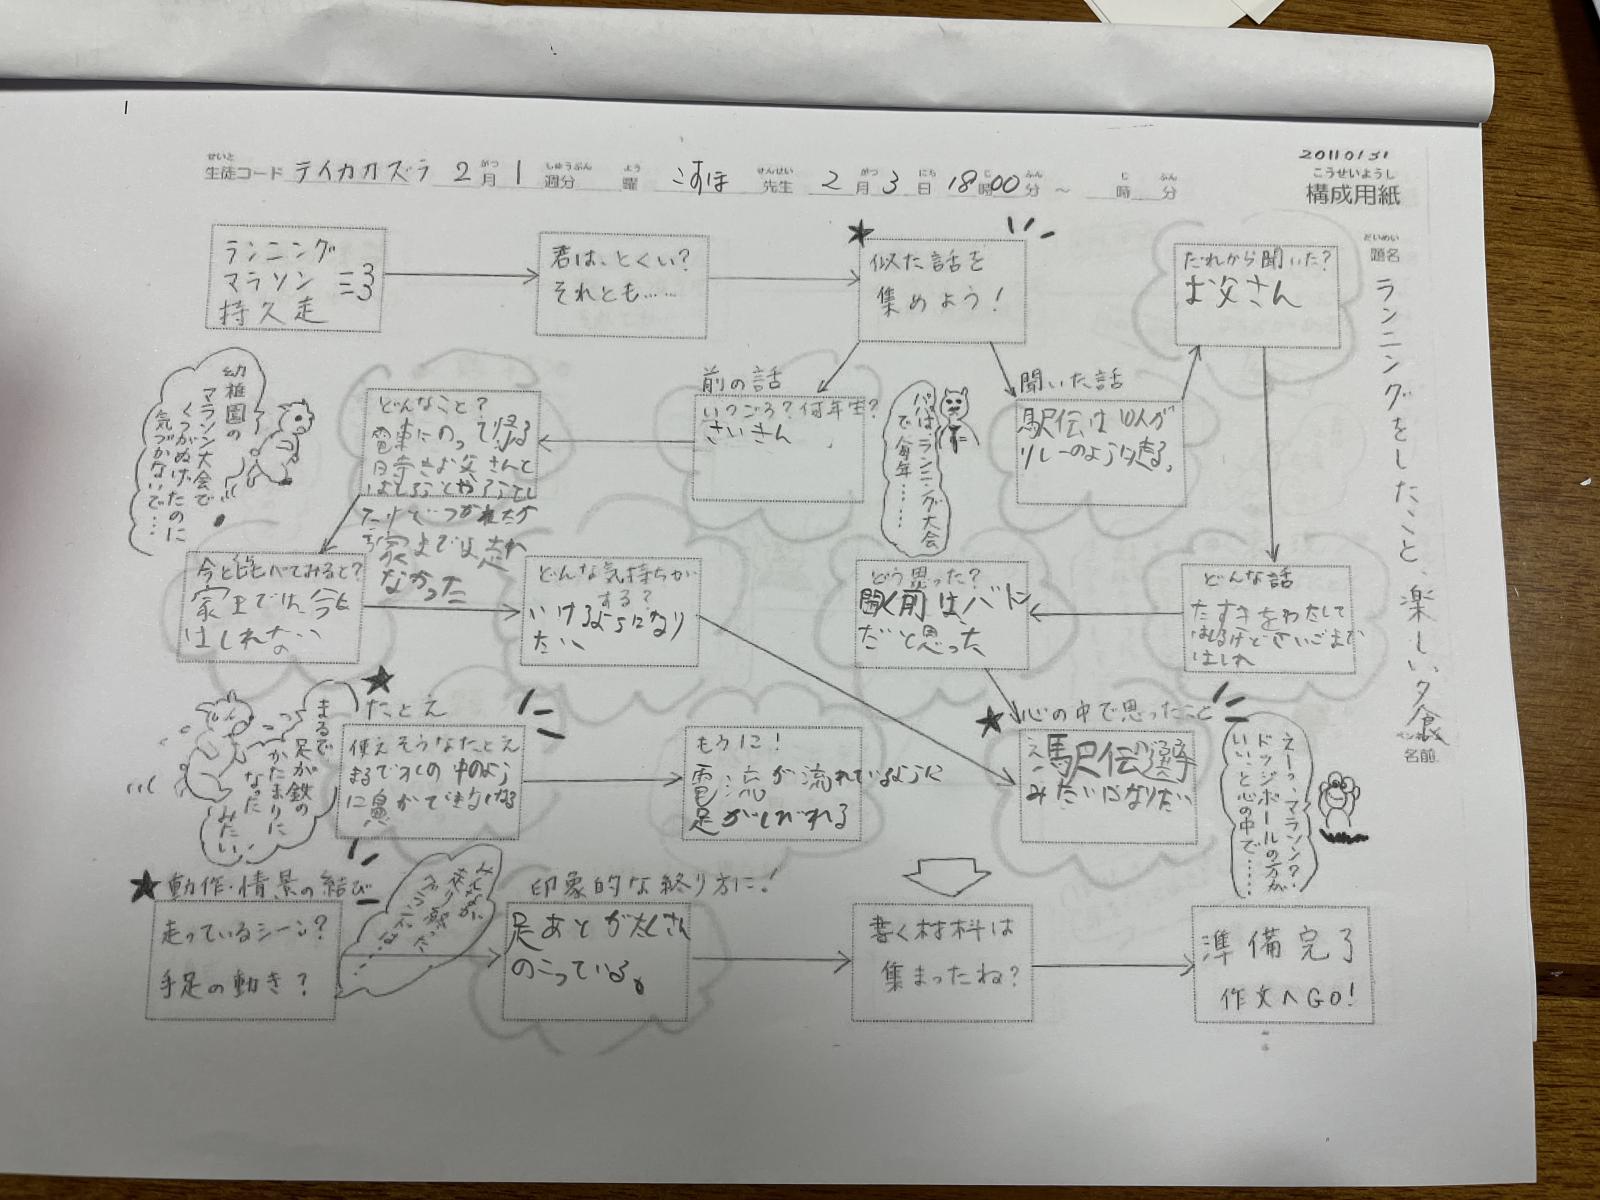 20110131
こうせいようし
構成用紙
せいと
生徒コード テイカカズラ 2 月 1 週分 曜 こすほ 先生 2 月 3 日 18 時 00 分 ～ 時 分
がつ しゅうぶん よう せんせい がつ にち じ ふん じ ふん
だいめい
題名
ランニングをしたこと、楽しい夕食
名前
ランニング
マラソン
持久走
君は、とくい?
それとも……
似た話を
集めよう!
だれから聞いた?
お父さん
幼稚園の
マラソン大会で
くつがぬげたのに
気づかないで…
どんなこと?
電車にのって帰る
時お父さんと
はしろうとやろうとし
たけどつかれたか
ら家までは走れ
なかった
前の話
いつごろ?何年生?
さいきん
パパはランニング大会
で毎年……
聞いた話
駅伝は10人が
リレーのように走る。
今と比べてみると?
家まではは今も
はしれない
どんな気持ちが
する?
いけるようになり
たい
どう思った?
聞く前は、バトン
だと思った
どんな話
たすきをわたして
はしるけどさいごまで
はしれ
まるで
足が鉄の
かたまりに
なった
みたい
たとえ
使えそうなたとえ
まるで氷の中のよう
に鼻が
もう一に!
電流が流れているように
足がしびれる
心の中で思ったこと
駅伝の選手
みたいになりたい
えーっ、マラソン?
ドッジボールの方が
いいこと心の中で……
動作・情景の結び
走っているシーン?
手足の動き?
みんなが
走り終わった
グラウンドは
……
印象的な終り方に!
足あとがたくさん
のこっている。
書く材料は
集まったね?
準備完了
作文へGO!